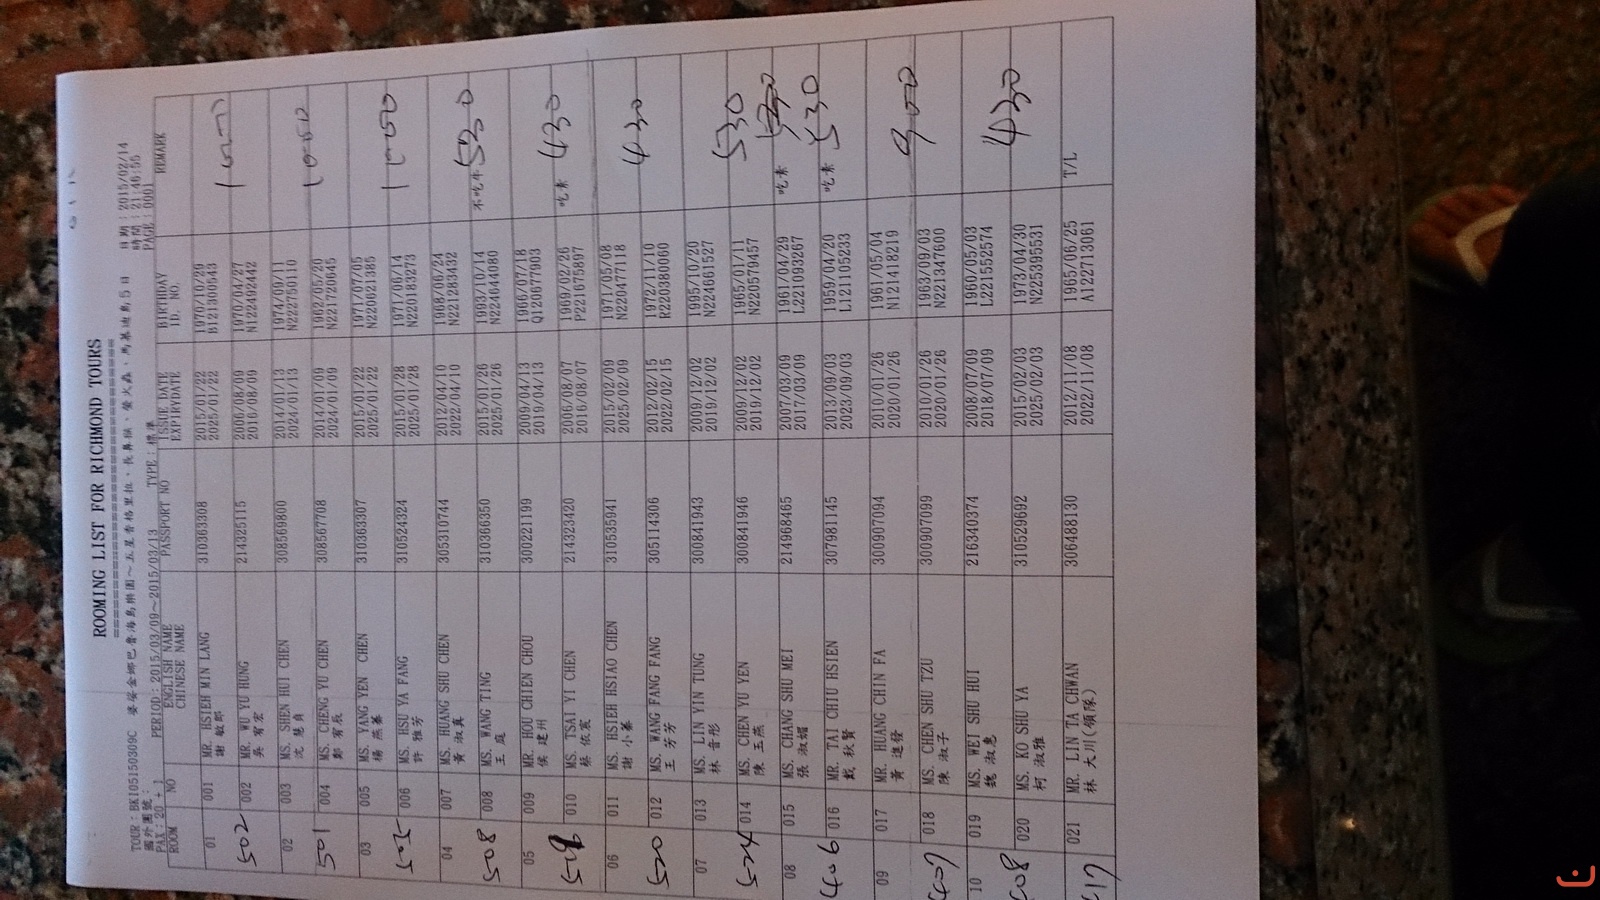 ROOMING LIST FOR RICHMOND TOURS
TOUR : BK105150309C 婆安金娜巴魯海島樂園～五星香格里拉、長鼻猴、螢火蟲、馬慕迪島５日 日期 : 2015/02/14
國外團號 : 時間 : 21:46:55
PAX : 20 + 1 PERIOD : 2015/03/09～2015/03/13 TYPE : 標準 PAGE : 0001
ROOM NO ENGLISH NAME PASSPORT NO ISSUE DATE BIRTHDAY REMARK
CHINESE NAME EXPIRYDATE ID. NO.
01 001 MR. HSIEH MIN LANG 310363308 2015/01/22 1970/10/29
謝 敏郎 2025/01/22 B121309543
502 002 MR. WU YU HUNG 214325115 2006/08/09 1970/04/27
吳 宥宏 2016/08/09 N122492442
02 003 MS. SHEN HUI CHEN 308569800 2014/01/13 1974/09/11 1000
沈 慧貞 2024/01/13 N222750110
501 004 MS. CHENG YU CHEN 308567708 2014/01/09 1962/05/20
鄭 宥辰 2024/01/09 N221720645
03 005 MS. YANG YEN CHEN 310363307 2015/01/22 1971/07/05 1000
楊 燕蓁 2025/01/22 N220621385
505 006 MS. HSU YA FANG 310524324 2015/01/28 1971/06/14
許 雅芳 2025/01/28 N220183273
04 007 MS. HUANG SHU CHEN 305310744 2012/04/10 1968/06/24
黃 淑真 2022/04/10 N221283432
508 008 MS. WANG TING 310366350 2015/01/26 1993/10/14 不吃牛 530
王 庭 2025/01/26 N224644080
05 009 MR. HOU CHIEN CHOU 300221199 2009/04/13 1966/07/18
侯 建州 2019/04/13 Q120677903
010 MS. TSAI YI CHEN 214323420 2006/08/07 1969/02/26 吃素 430
蔡 依宸 2016/08/07 P221675897
06 011 MS. HSIEH HSIAO CHEN 310535941 2015/02/09 1971/05/08 430
謝 小蓁 2025/02/09 N220477118
520 012 MS. WANG FANG FANG 305114306 2012/02/15 1972/11/10
王 芳芳 2022/02/15 R220380060
07 013 MS. LIN YIN TUNG 300841943 2009/12/02 1995/10/20 530
林 音彤 2019/12/02 N224661527
524 014 MS. CHEN YU YEN 300841946 2009/12/02 1965/01/11
陳 玉燕 2019/12/02 N220579457
08 015 MS. CHANG SHU MEI 214968465 2007/03/09 1961/04/29 吃素
張 淑媚 2017/03/09 L221093267
406 016 MR. TAI CHIU HSIEN 307981145 2013/09/03 1959/04/20 吃素 530
戴 秋賢 2023/09/03 L121105233
09 017 MR. HUANG CHIN FA 300907094 2010/01/26 1961/05/04 900
黃 進發 2020/01/26 N121418219
407 018 MS. CHEN SHU TZU 300907099 2010/01/26 1963/09/03
陳 淑子 2020/01/26 N221347600
10 019 MS. WEI SHU HUI 216340374 2008/07/09 1960/05/03 430
魏 淑惠 2018/07/09 L221552574
408 020 MS. KO SHU YA 310529692 2015/02/03 1973/04/30
柯 淑雅 2025/02/03 N225395531
417 021 MR. LIN TA CHWAN 306488130 2012/11/08 1965/06/25 T/L
林 大川(領隊) 2022/11/08 A122713061